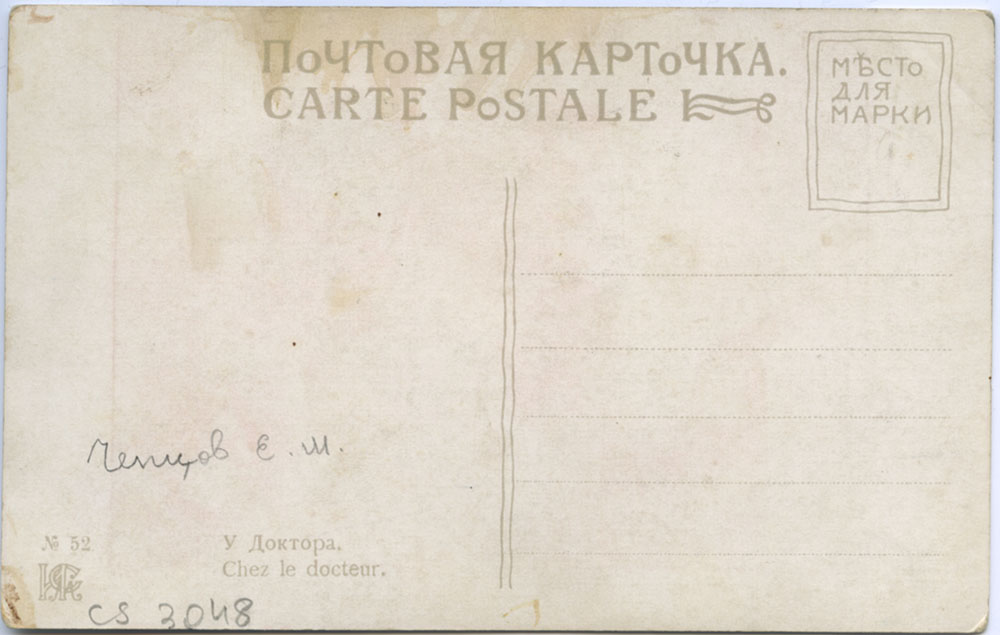 ПОЧТОВАЯ КАРТОЧКА.
CARTE POSTALE
МѢСТО
ДЛЯ
МАРКИ
Чепцов Е. М.
№ 52
У Доктора.
Chez le docteur.
CS 3048